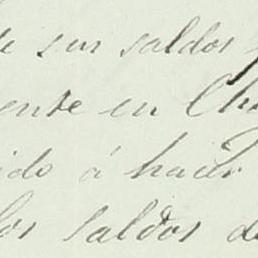 sus saldos
ente en
ido á hacer
los saldos de